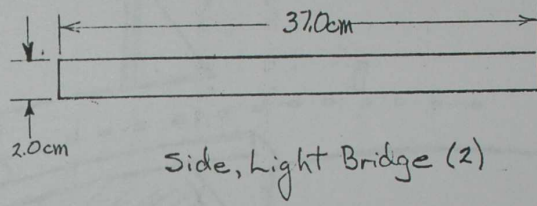 37.0cm
2.0cm
Side, Light Bridge (2)